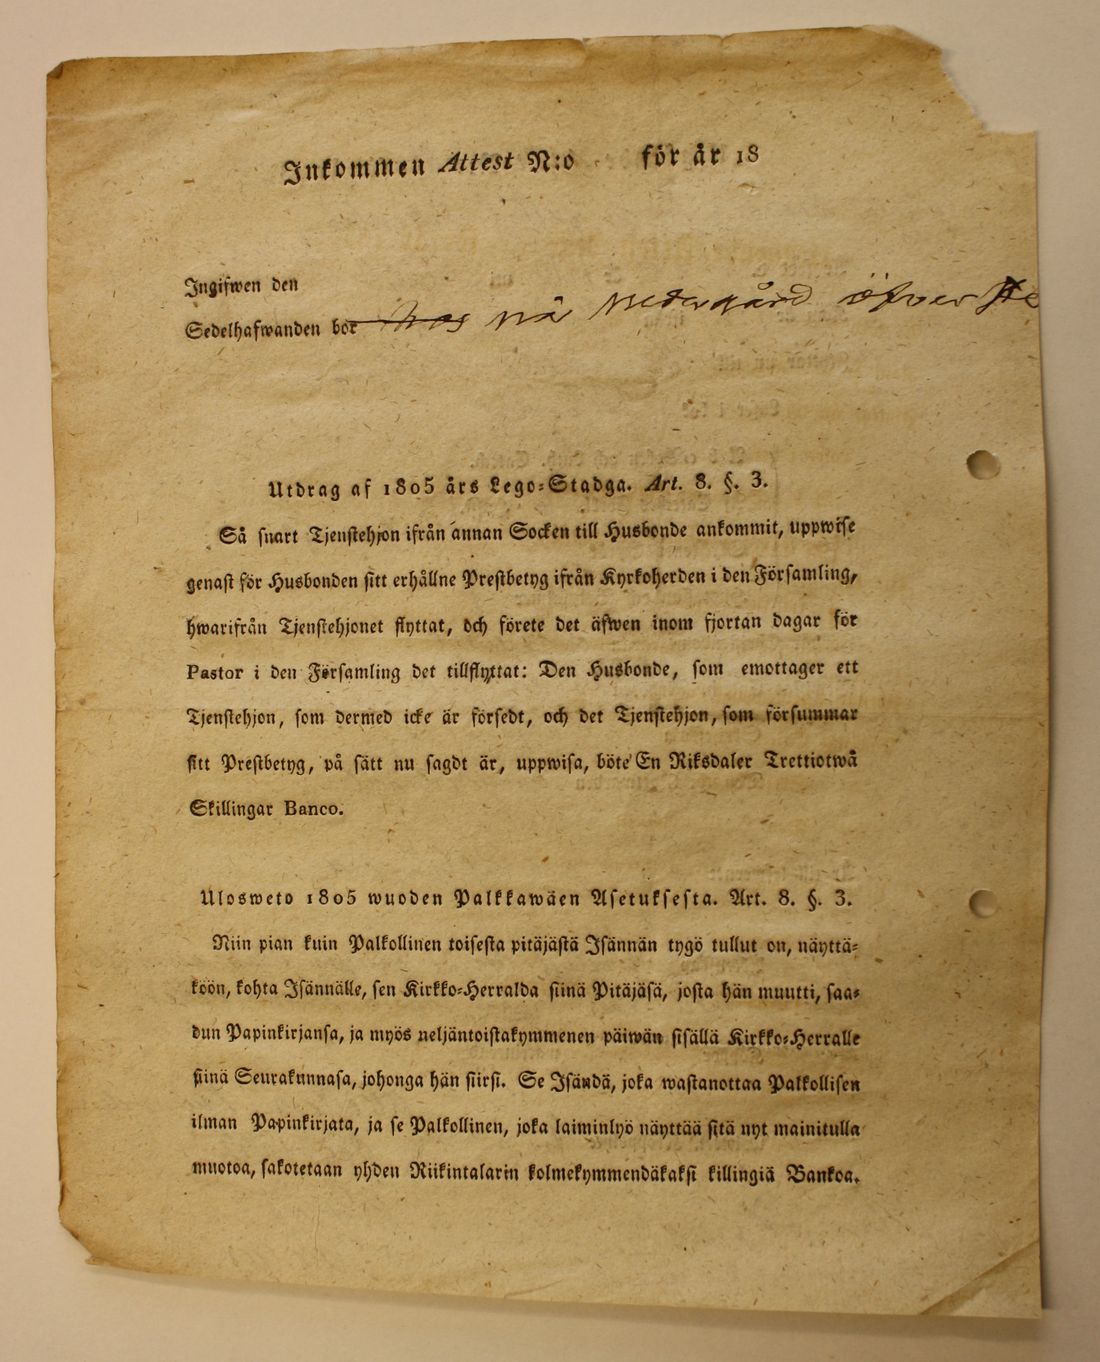 Inkommen Attest N:o för år 18
Ingifwen den
Sedelhafwanden bor hos på nedergård öfver
Utdrag af 1805 års Lego-Stadga. Art. 8. §. 3.
Så snart Tjenstehjon ifrån annan Socken till Husbonde ankommit, uppwise
genast för Husbonden sitt erhållne Prestbetyg ifrån Kyrkoherden i den Församling,
hwarifrån Tjenstehjonet flyttat, och förete det äfwen inom fjortan dagar för
Pastor i den Församling det tillflyttat: Den Husbonde, som emottager ett
Tjenstehjon, som dermed icke är försedt, och det Tjenstehjon, som försummar
sitt Prestbetyg, på sätt nu sagdt är, uppwisa, böte En Riksdaler Trettiotwå
Skillingar Banco.
Ulosweto 1805 wuoden Palkkawäen Asetuksesta. Art. 8. §. 3.
Niin pian kuin Palkollinen toisesta pitäjästä Isännän tygö tullut on, näyttä-
köön, kohta Isännälle, sen Kirkko-Herralda siinä Pitäjäsä, josta hän muutti, saa-
dun Papinkirjansa, ja myös neljäntoistakymmenen päiwän sisällä Kirkko-Herralle
siinä Seurakunnasa, johonga hän siirsi. Se Isändä, joka wastanottaa Palkollisen
ilman Papinkirjata, ja se Palkollinen, joka laiminlyö näyttää sitä nyt mainitulla
muotoa, sakotetaan yhden Riikintalarin kolmekymmendäkaksi killingiä Bankoa.